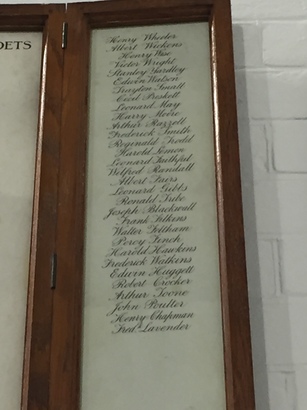 DETS
Henry Wheeler
Albert Wickens
Henry Wise
Victor Wright
Stanley Yardley
Edwin Watson
Drayton Small
Cecil Preskett
Leonard May
Harry Moore
Arthur Razzell
Frederick Smith
Reginald Trodd
Harold Lemon
Leonard Faithful
Wilfred Randall
Albert Fairs
Leonard Gibbs
Ronald Tribe
Joseph Blackwall
Frank Filkins
Walter Feltham
Percy Finch
Harold Hawkins
Frederick Watkins
Edwin Huggett
Robert Crocker
Arthur Toone
John Poulter
Henry Chapman
Fred Lavender